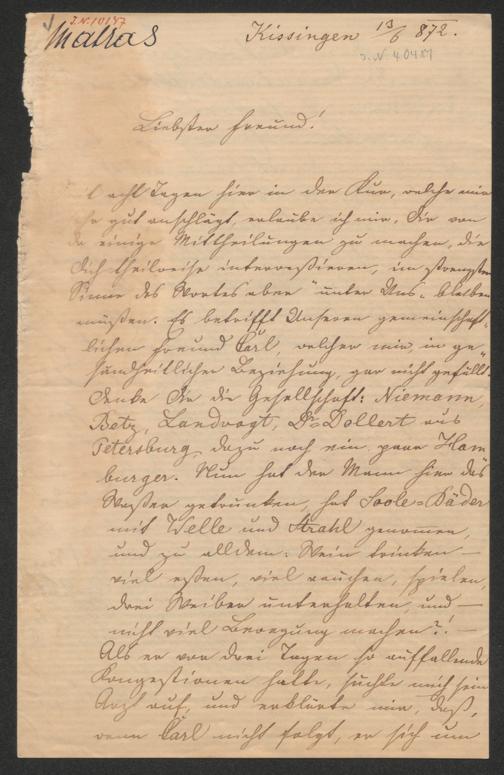 I.N. 10187
Matras
Kissingen 13/6 872.
I.N. 40487
Liebster Freund!
t acht Tagen hier in der Kur, welche mir
hr gut anschlägt, erlaube ich mir, Dir von
da einige Mittheilungen zu machen, die
Dich theilweise interressieren, im strengsten
Sinne des Wortes aber "unter Uns" bleiben
müßen. Es betrifft Unseren gemeinschaft-
lichen Freund Carl, welcher mir, in ge-
sundheitlicher Beziehung, gar nicht gefällt.
Denke Dir die Gesellschaft: Niemann,
Betz, Landvogt, Dr Dollert aus
Petersburg, dazu noch ein paar Ham-
burger. Nun hat der Mann hier das
Waßer getrunken, hat Soole-Bäder
mit Welle und Strahl genommen,
und zu alldem: Wein trinken –
viel eßen, viel rauchen, spielen,
drei Weiber unterhalten, und –
nicht viel Bewegung machen?! –
Als er vor drei Tagen so auffallende
Kongestionen hatte, suchte mich sein
Arzt auf, und erklärte mir, daß,
wenn Carl nicht folgt, er sich um